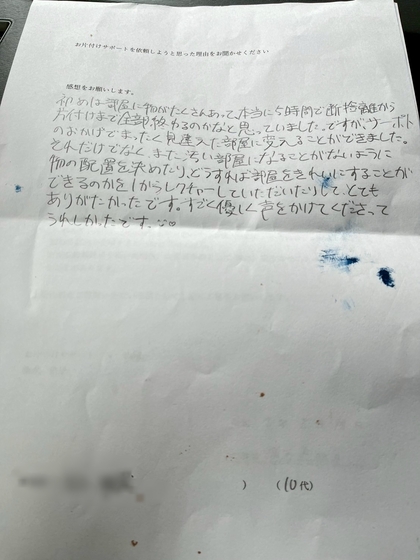 お片付けサポートを依頼しようと思った理由をお聞かせください
感想をお願いします。
初めは部屋に物がたくさんあって、本当に5時間で断捨離から
お片付けまで全部終わるのかなと思っていました。ですが、サポート
のおかげでまったく見違えた部屋に変えることができました。
それだけでなく、また汚い部屋になることがないように
物の配置を決めたり、どうすれば部屋をきれいにすることが
できるのかを1からレクチャーしていただいたりして、とても
ありがたかったです。すごく優しく声をかけてくださって
うれしかったです。
) (10代)